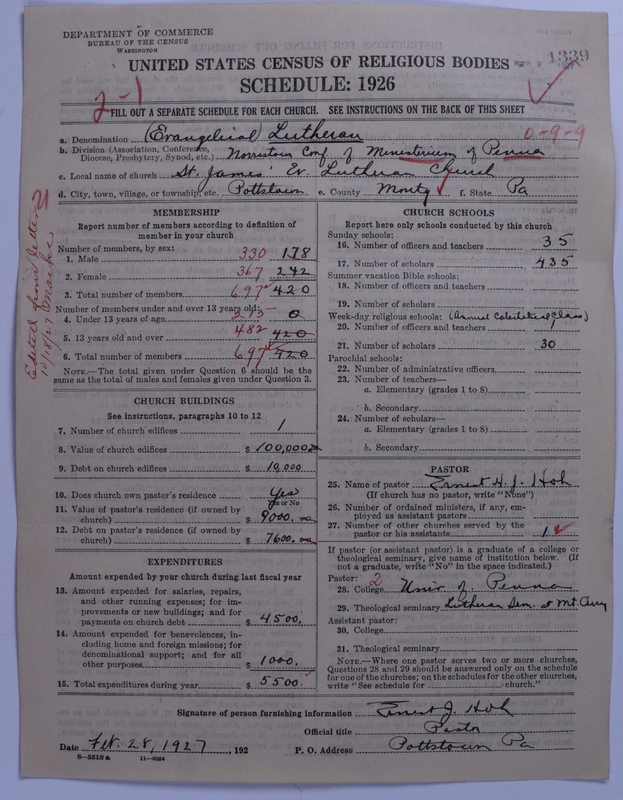 DEPARTMENT OF COMMERCE
BUREAU OF THE CENSUS
WASHINGTON
1339
UNITED STATES CENSUS OF RELIGIOUS BODIES
SCHEDULE: 1926
2-1
FILL OUT A SEPARATE SCHEDULE FOR EACH CHURCH. SEE INSTRUCTIONS ON THE BACK OF THIS SHEET
a. Denomination (Evangelical) Lutheran 0-9-9
b. Division (Association, Conference, Diocese, Presbytery, Synod, etc.) Norristown Conf. of Ministerium of Penna
c. Local name of church St. James' Ev. Lutheran Church
d. City, town, village, or township, etc. Pottstown e. County Montg f. State Pa
Edited from letter
10/18/27
MEMBERSHIP
Report number of members according to definition of
member in your church
Number of members, by sex:
1. Male 330 178
2. Female 367 242
3. Total number of members 697 420
Number of members under and over 13 years old:
4. Under 13 years of age 0
5. 13 years old and over 482 420
6. Total number of members 697 420
NOTE.—The total given under Question 6 should be the
same as the total of males and females given under Question 3.
CHURCH BUILDINGS
See instructions, paragraphs 10 to 12
7. Number of church edifices 1
8. Value of church edifices $ 100,000
9. Debt on church edifices $ 10,000
10. Does church own pastor's residence Yes
Yes or No
11. Value of pastor's residence (if owned by
church) $ 9000.
12. Debt on pastor's residence (if owned by
church) $ 7600.
EXPENDITURES
Amount expended by your church during last fiscal year
13. Amount expended for salaries, repairs,
and other running expenses; for im-
provements or new buildings; and for
payments on church debt $ 4500.
14. Amount expended for benevolences, in-
cluding home and foreign missions; for
denominational support; and for all
other purposes $ 1000.
15. Total expenditures during year $ 5500.
CHURCH SCHOOLS
Report here only schools conducted by this church
Sunday schools:
16. Number of officers and teachers 35
17. Number of scholars 435
Summer vacation Bible schools:
18. Number of officers and teachers
19. Number of scholars
Week-day religious schools: (Annual Catechetical Class)
20. Number of officers and teachers
21. Number of scholars 30
Parochial schools:
22. Number of administrative officers
23. Number of teachers—
a. Elementary (grades 1 to 8)
b. Secondary
24. Number of scholars—
a. Elementary (grades 1 to 8)
b. Secondary
PASTOR
25. Name of pastor Ernest A. J. Hoh
(If church has no pastor, write "None")
26. Number of ordained ministers, if any, em-
ployed as assistant pastors
27. Number of other churches served by the
pastor or his assistants 1
If pastor (or assistant pastor) is a graduate of a college or
theological seminary, give name of institution below. (If
not a graduate, write "No" in the space indicated.)
Pastor: 2
28. College Univ. of Penna
29. Theological seminary Lutheran Sem. at Mt. Airy
Assistant pastor:
30. College
31. Theological seminary
NOTE.—Where one pastor serves two or more churches,
Questions 28 and 29 should be answered only on the schedule
for one of the churches; on the schedules for the other churches,
write "See schedule for church."
Signature of person furnishing information Ernest J. Hoh
Official title Pastor
Date Feb. 28, 1927, 192 P. O. Address Pottstown Pa
8-5518 a 11-9054